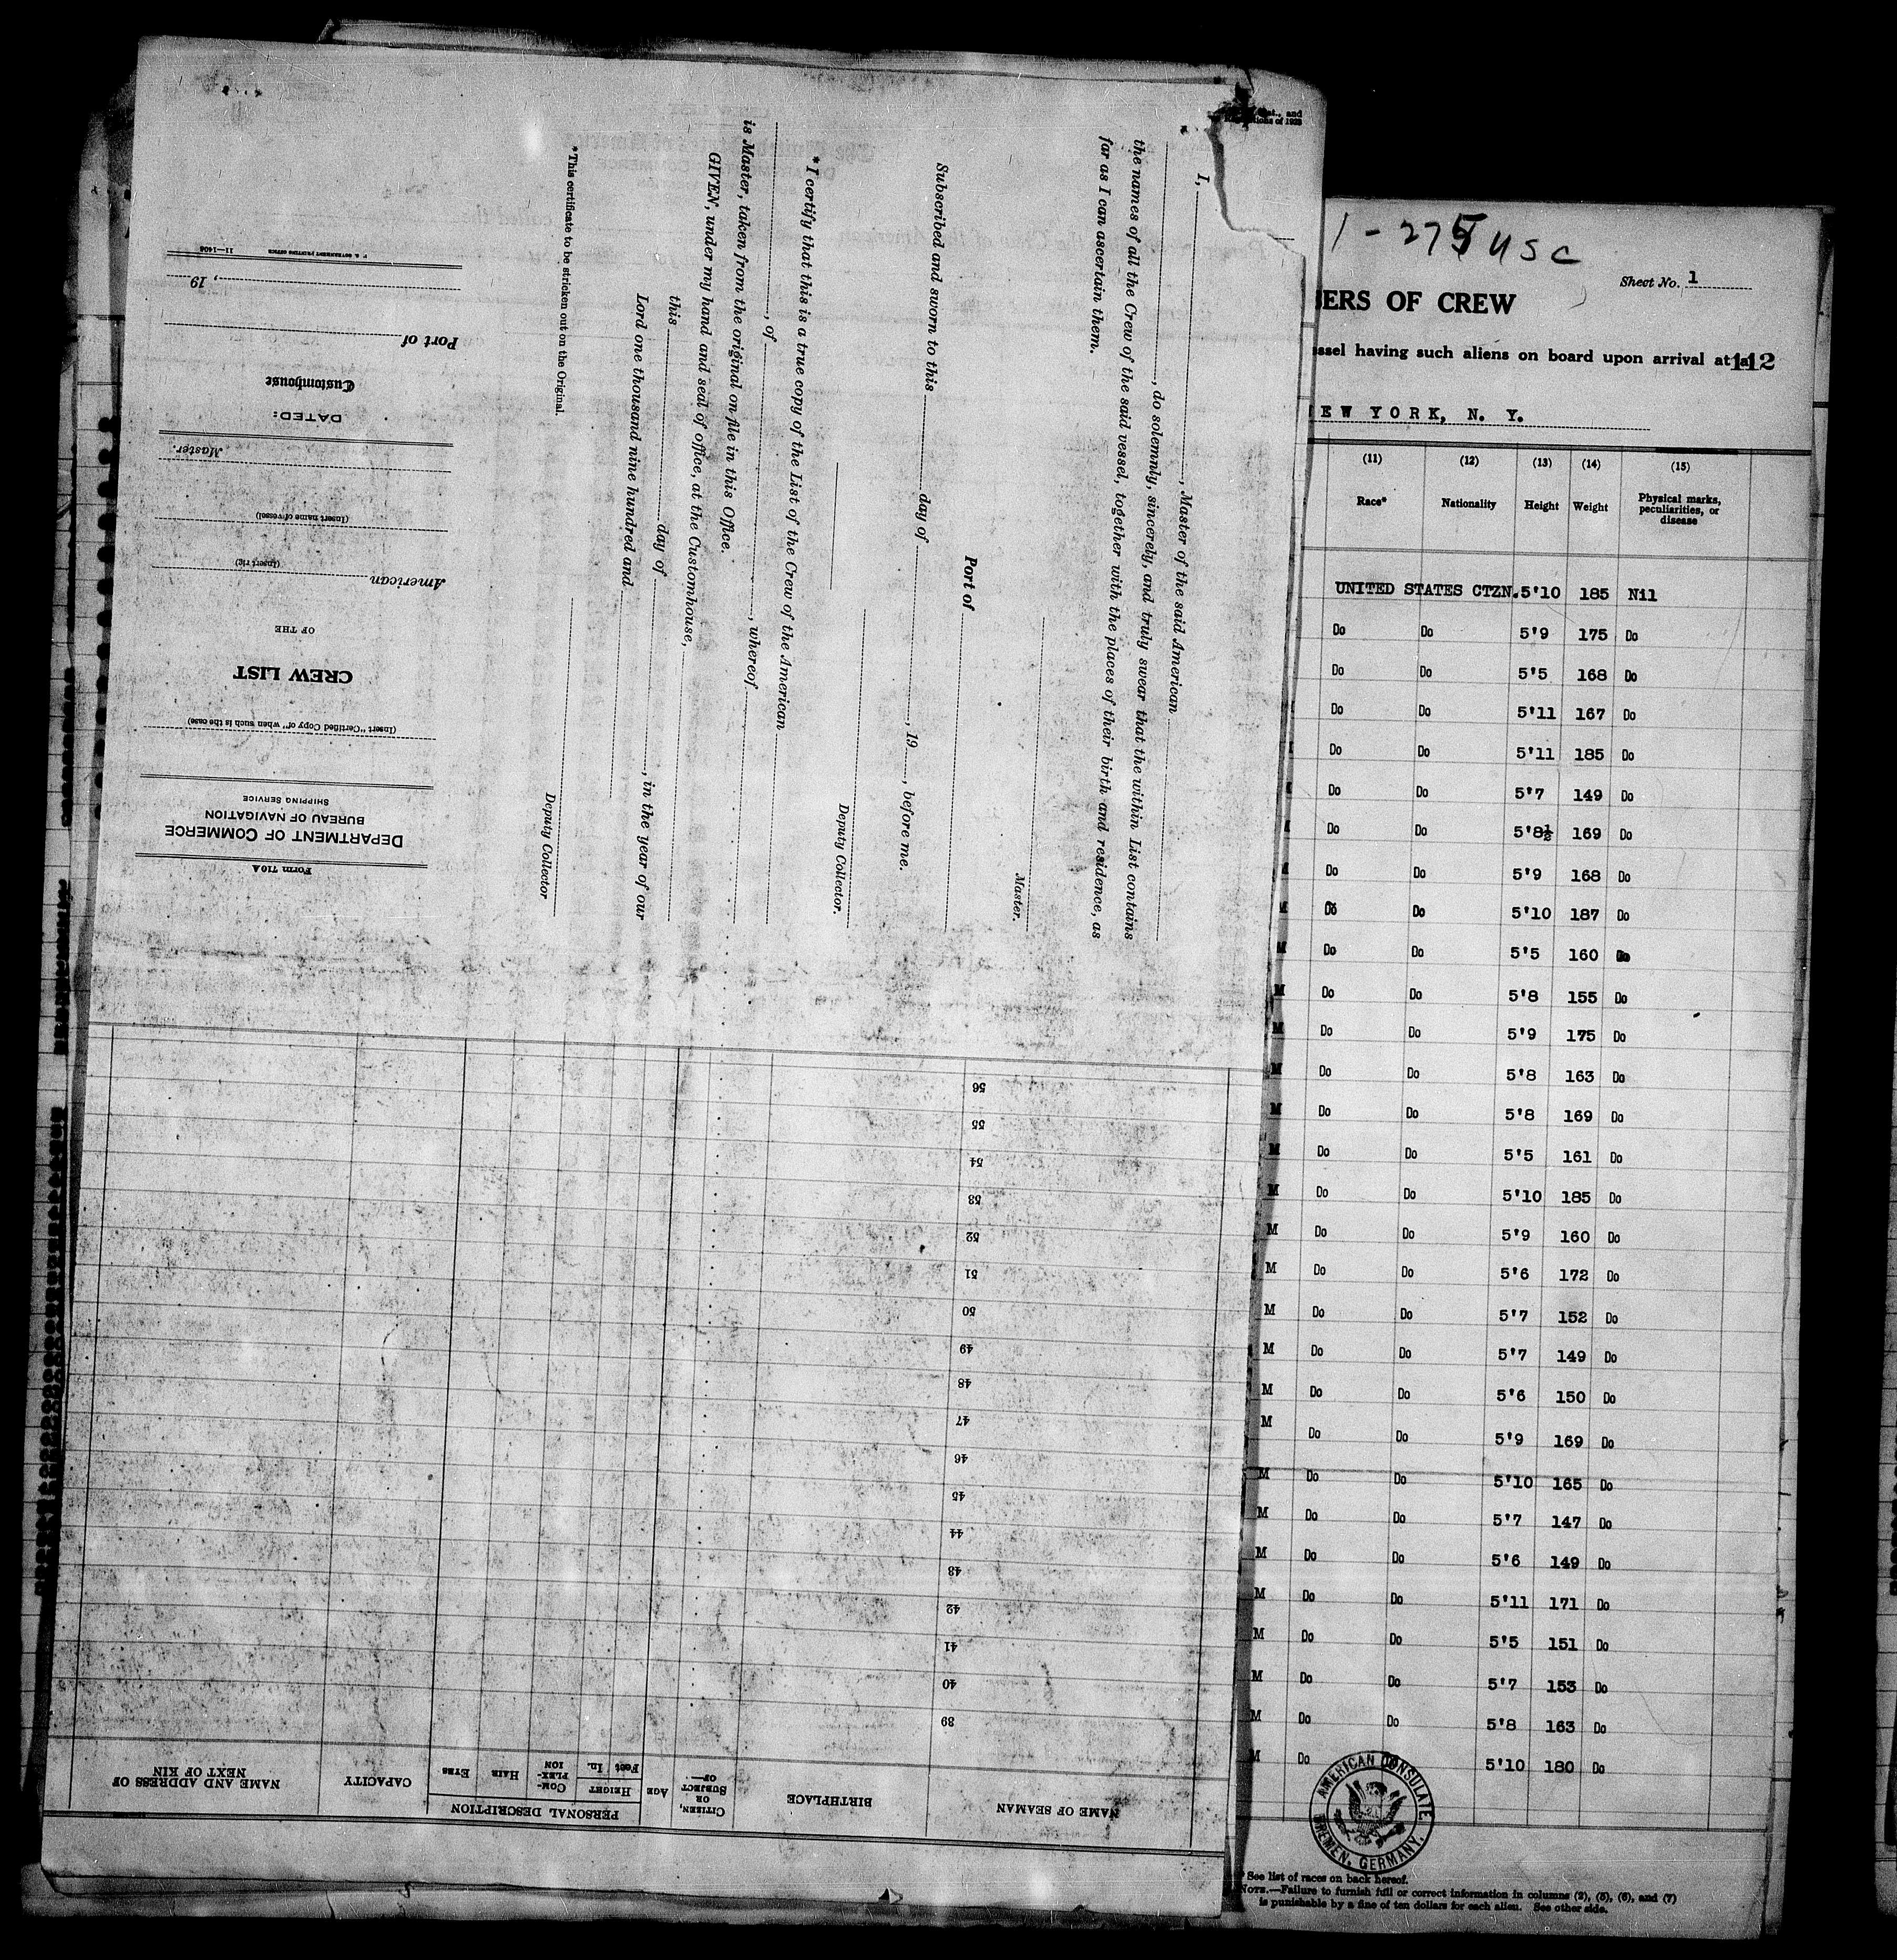 I, ........, Master of the said American
........, do solemnly, sincerely, and truly swear that the within List contains
the names of all the Crew of the said vessel, together with the places of their birth and residence, as
far as I can ascertain them.
Master.
Port of
Subscribed and sworn to this ........ day of ........, 19...., before me.
Deputy Collector.
* I certify that this is a true copy of the List of the Crew of the American
........, of ........, whereof
is Master, taken from the original on file in this Office.
GIVEN, under my hand and seal of office, at the Customhouse,
this ........ day of ........, in the year of our
Lord one thousand nine hundred and
Deputy Collector
*This certificate to be stricken out on the Original.
Form 710A
DEPARTMENT OF COMMERCE
BUREAU OF NAVIGATION
SHIPPING SERVICE
(Insert "Certified Copy of" when such is the case)
CREW LIST
OF THE
American
(Insert rig)
(Insert name of vessel)
Master.
DATED:
Customhouse
Port of
, 19
U. S. GOVERNMENT PRINTING OFFICE 11—1406
NAME OF SEAMAN BIRTHPLACE CITIZEN, OR SUBJECT OF— AGE PERSONAL DESCRIPTION CAPACITY NAME AND ADDRESS OF NEXT OF KIN
HEIGHT COM-PLEX-ION HAIR EYES
Feet In.
39
40
41
42
43
44
45
46
47
48
49
50
51
52
53
54
55
56
1 - 275 USC
Sheet No. 1
ERS OF CREW
ssel having such aliens on board upon arrival at a
112
EW YORK, N. Y.
(11) (12) (13) (14) (15)
Race* Nationality Height Weight Physical marks, peculiarities, or disease
UNITED STATES CTZN. 5'10 185 Nil
Do Do 5'9 175 Do
Do Do 5'5 168 Do
Do Do 5'11 167 Do
Do Do 5'11 185 Do
Do Do 5'7 149 Do
Do Do 5'8½ 169 Do
Do Do 5'9 168 Do
M Do Do 5'10 187 Do
M Do Do 5'5 160 Do
M Do Do 5'8 155 Do
M Do Do 5'9 175 Do
M Do Do 5'8 163 Do
M Do Do 5'8 169 Do
M Do Do 5'5 161 Do
M Do Do 5'10 185 Do
M Do Do 5'9 160 Do
M Do Do 5'6 172 Do
M Do Do 5'7 152 Do
M Do Do 5'7 149 Do
M Do Do 5'6 150 Do
M Do Do 5'9 169 Do
M Do Do 5'10 165 Do
M Do Do 5'7 147 Do
M Do Do 5'6 149 Do
M Do Do 5'11 171 Do
M Do Do 5'5 151 Do
M Do Do 5'7 153 Do
M Do Do 5'8 163 Do
M Do Do 5'10 180 Do
AMERICAN CONSULATE
BREMEN, GERMANY.
* See list of races on back hereof.
NOTE.—Failure to furnish full or correct information in columns (2), (5), (6), and (7)
is punishable by a fine of ten dollars for each alien. See other side.